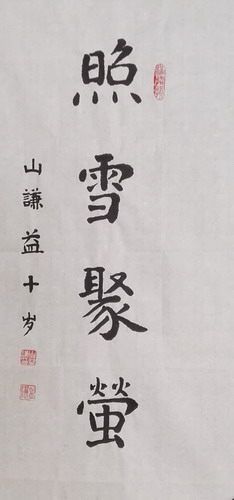 照雪聚螢
山謙益十岁